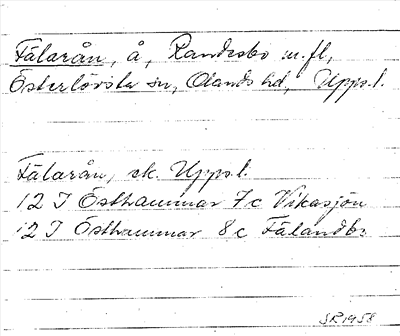 Fälarån, å, Randesbo m.fl,
Österlövsta sn, Olands hd, Upps.l.
Fälarån, sk. Upps.l.
12 I Östhammar 7c Vikasjön
12 I Östhammar 8c Fälandbo
SR 1958